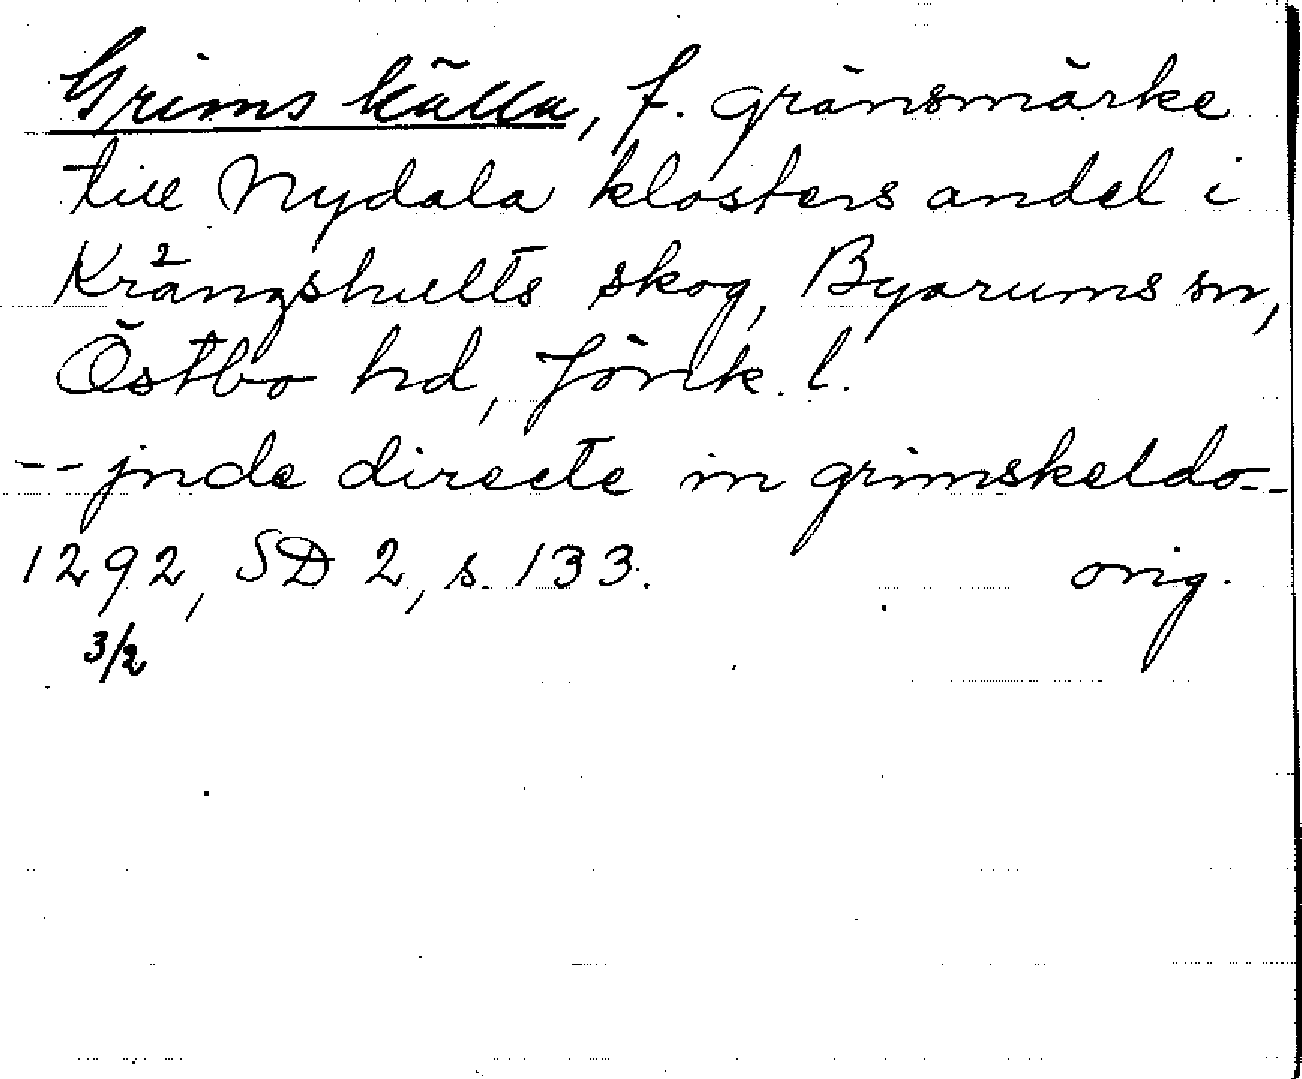 Grims källa, f. gränsmärke
till Nydala klosters andel i
Krängshults skog, Byarums sn,
Östbo hd, Jönk. l.
-- jnde directe in grimskeldo--
1292, SD 2, s. 133. orig.
3/2